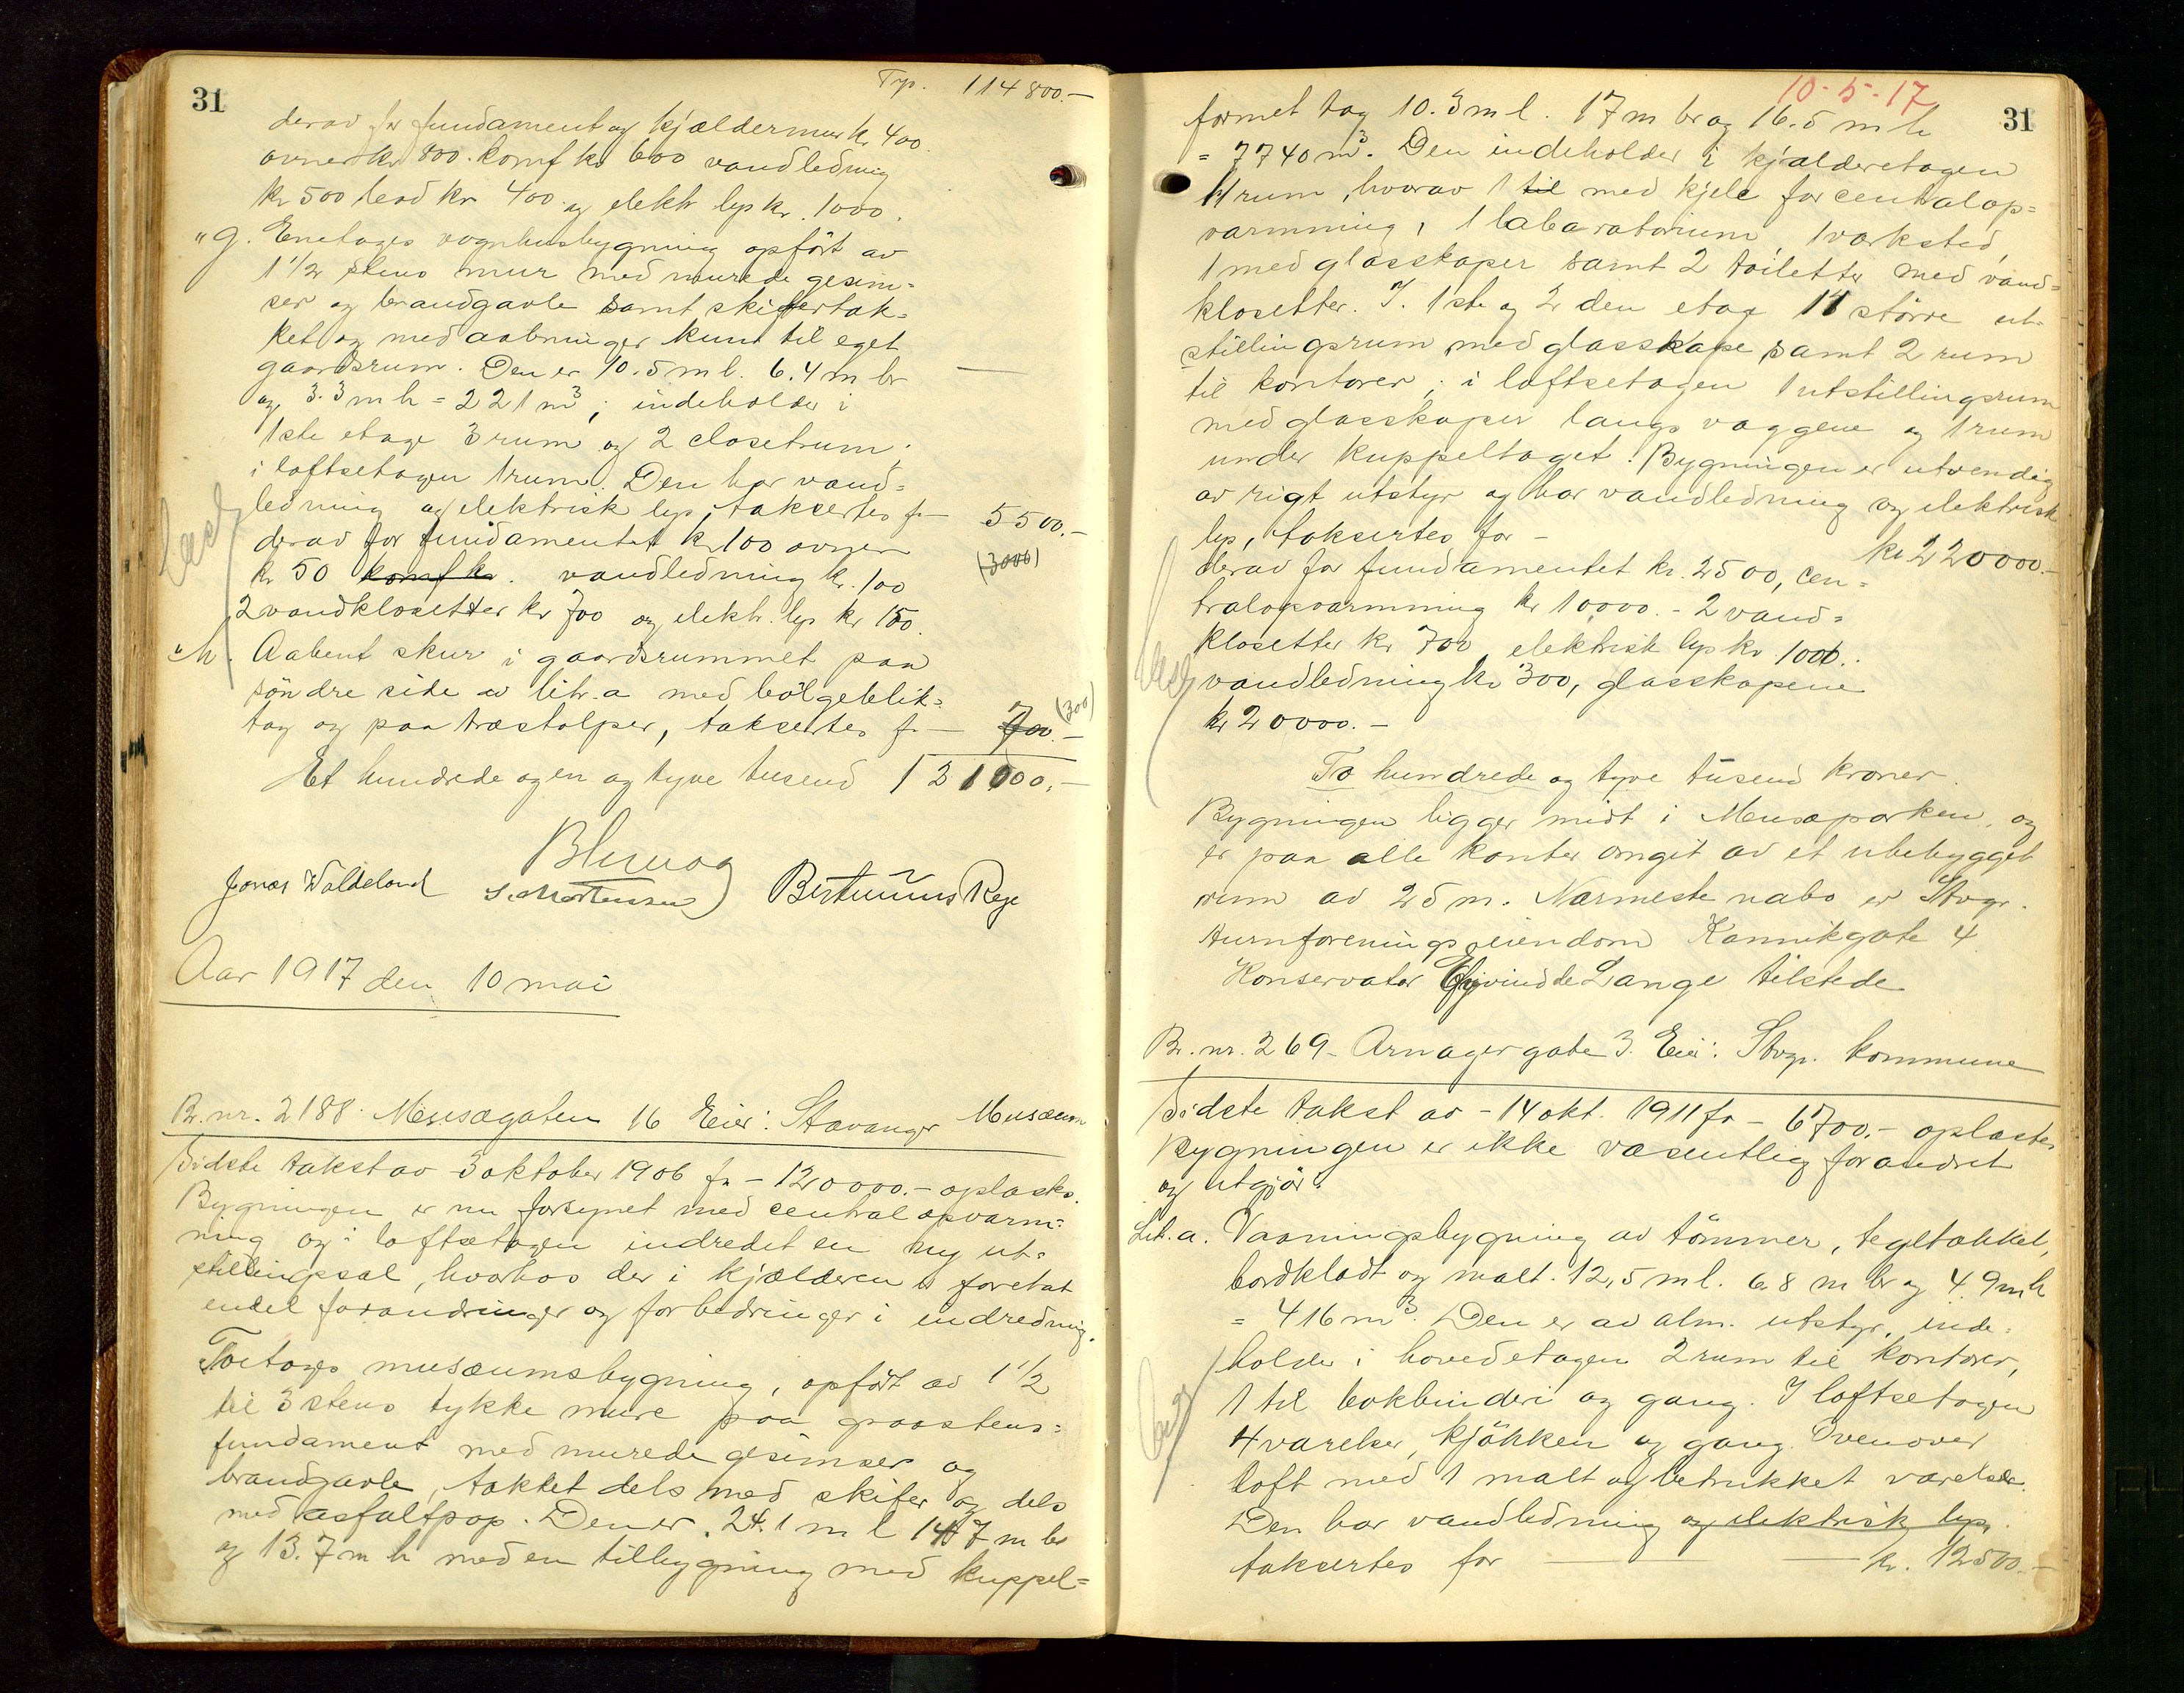 31
Trp. 114 800.-
derav for fundament og kjældermur kr 400.
ovner kr 800. komf kr 600 vandledning
kr 500 bad kr 400 og elektr lys kr. 1000.
" g. Enetages vognhusbygning opført av
1 1/2 stens mur med murede gesim=
ser og brandgavle samt skifertak=
ket og med aabninger kunt til eget
gaardsrum. Den er 10.5 m l. 6.4 m br
og 3.3 m h = 221 m³; indeholder i
1ste etage 3 rum og 2 closetrum;
i loftsetagen 1 rum. Den har vand=
ledning og elektrisk lys, taksertes fr — 5500.-
derav for fundamentet kr 100 ovner (3000)
kr 50 komf kr. vandledning kr. 100
2 vandklosetter kr 700 og elektr. lys kr 150.
" h. Aabent skur i gaardsrummet paa
söndre side av litr. a med bölgeblik=
tag og paa træstolper, taksertes fr — 700.- (300)
Et hundrede og en og tyve tusend 121000.-
Jonas Waldeland S. Mortensen Bertinius Rege
Aar 1917 den 10 mai
Br. nr. 2188. Musægaten 16 Eier: Stavanger Musæum
Sidste takst av 3 oktober 1906 fr — 120000.- oplæstes.
Bygningen er nu forsynet med centralopvarm=
ning og i loftsetagen indredet en ny ut=
stillingssal, hvorhos der i kjælderen er foretat
endel forandringer og forbedringer i indredning.
Toetages musæumsbygning, opført av 1 1/2
til 3 stens tykke mure paa graastens=
fundament med murede gesimser og
brandgavle, tækket dels med skifer og dels
med asfaltpap. Den er 24.1 m l 14.7 m br
og 13.7 m h med en tilbygning med kuppel=
10-5-17
31
formet tag 10.3 m l. 17 m br og 16.5 m h
= 7740 m³. Den indeholder i kjælderetagen
11 rum, hvorav 1 til med kjele for centalop=
varmning, 1 labaratorium, 1 værksted,
1 med glasskaper samt 2 toiletter med vand=
klosetter. I. 1ste og 2den etage 11 större ut=
stillingsrum med glasskape samt 2 rum
til kontorer; i loftsetagen 1 utstillingsrum
med glasskaper langs væggene og 1 rum
under kuppeltaget. Bygningen er utvendig
av rigt utstyr og har vandledning og elektrisk
lys, taksertes for — kr 220000.-
derav for fundamentet kr. 2500, cen=
tralopvarmning kr 10000.- 2 vand=
klosetter kr 700 elektrisk lys kr 1000.
vandledning kr 300, glasskapene
kr 20000.-
To hundrede og tyve tusend kroner.
Bygningen ligger midt i Musæparken, og
er paa alle kanter omgit av et ubebygget
rum av 25 m. Nærmeste nabo er Stvgr.
turnforenings eiendom Kannikgate 4
Konservator Eyvind de Lange tilstede
Br. nr. 269 - Arnagergate 3. Eier: Stvgr. kommune
Sidste takst av - 14 okt. 1911 fr — 6700.- oplæstes
Bygningen er ikke væsentlig forandret
og utgjör:
Lit. a. Vaaningsbygning av tömmer, tegltækket,
bordklædt og malt. 12,5 m l. 6.8 m br og 4.9 m h
= 416 m³. Den er av alm. utstyr, inde=
holder i hovedetagen 2 rum til kontorer,
1 til bokbinderi og gang. I loftsetagen
4 værelser, kjökken og gang. Ovenover
loft med 1 malt og betrukket værelse.
Den har vandledning og elektrisk lys,
taksertes for — kr. 12500.-